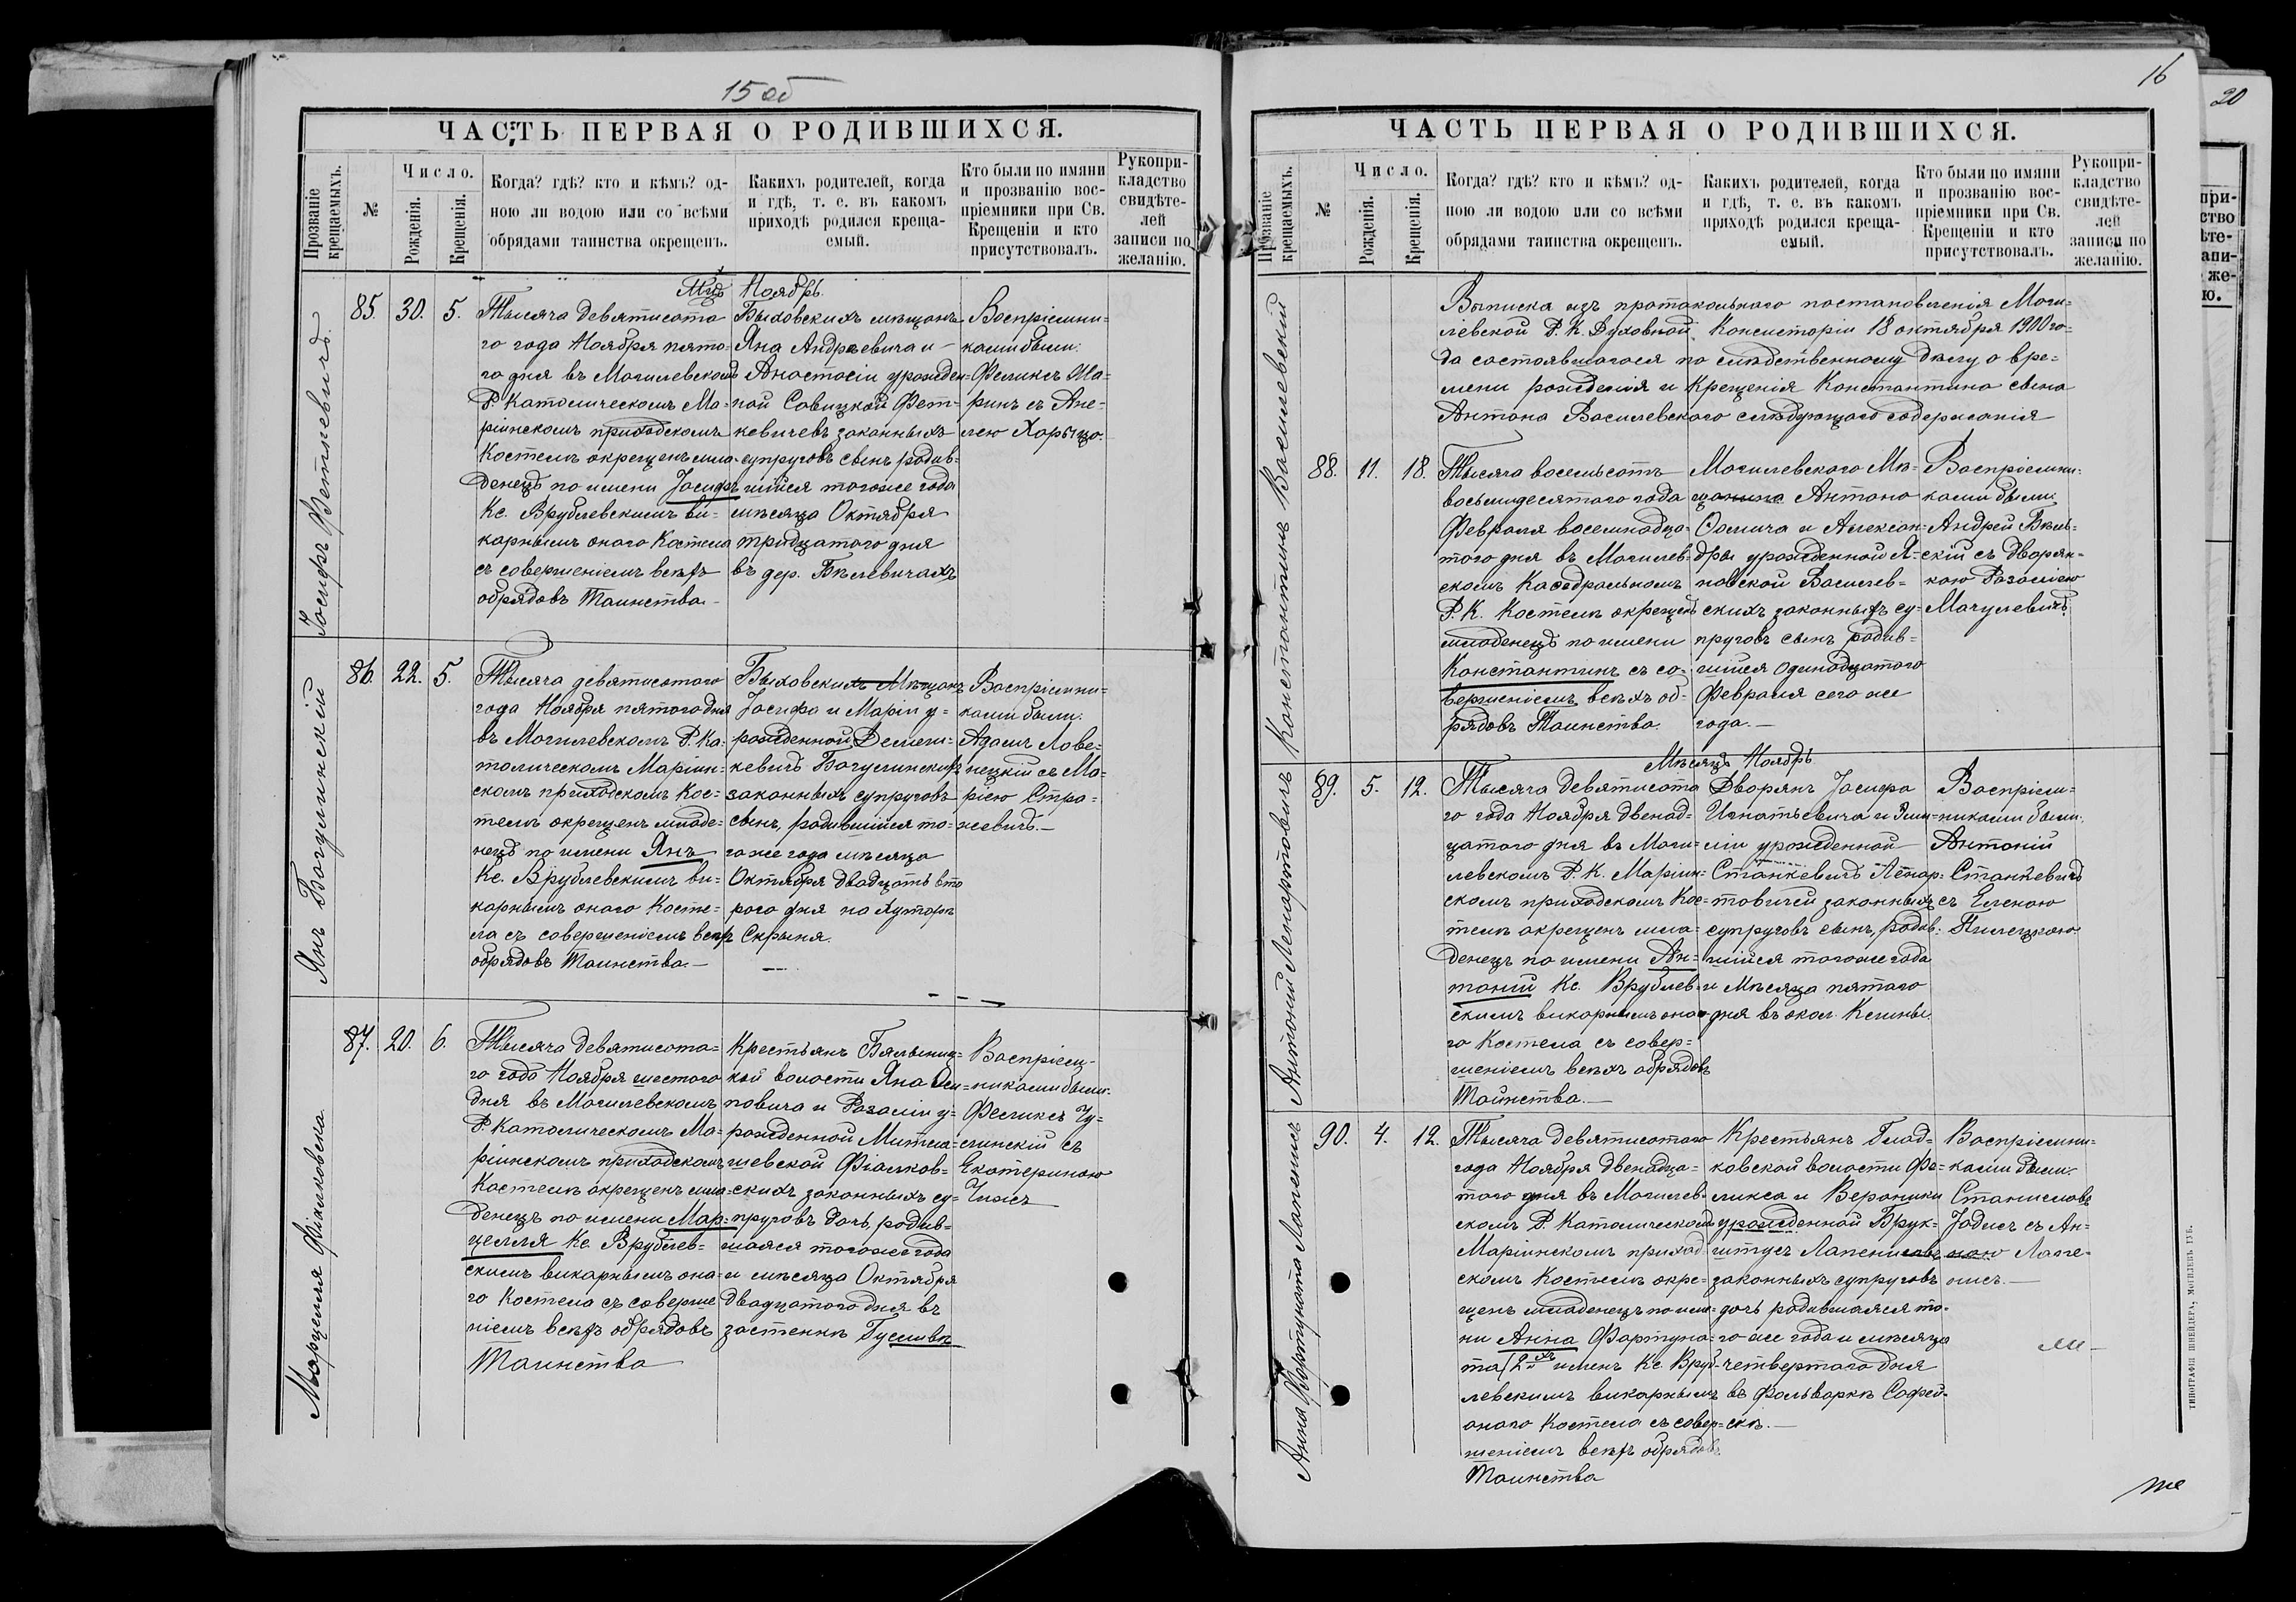 15 об
ЧАСТЬ ПЕРВАЯ О РОДИВШИХСЯ.
Прозваніе крещаемыхъ.
№
Число.
Рожденія.
Крещенія.
Когда? гдѣ? кто и кѣмъ? од-
ною ли водою или со всѣми
обрядами таинства окрещенъ.
Какихъ родителей, когда
и гдѣ, т. е. въ какомъ
приходѣ родился креща-
емый.
Кто были по имяни
и прозванію вос-
пріемники при Св.
Крещеніи и кто
присутствовалъ.
Рукопри-
кладство
свидѣте-
лей
записи по
желанію.
Мцъ Ноябрь.
Іосифъ Феткевичъ
85. 30. 5.
Тысяча девятисота
го года Ноября пято-
го дня въ Могилевскомъ
Р. Католическомъ Ма-
ріинскомъ приходскомъ
Костелѣ окрещенъ мла-
денецъ по имени Іосифъ
Кс. Врублевскимъ ви-
карнымъ оного Костела
съ совершеніемъ всѣхъ
обрядовъ Таинства.
Быховскихъ мѣщанъ
Яна Андреевича и
Анастасіи урожден-
ной Савицкой Фет-
кевичевъ законныхъ
супруговъ сынъ родив-
шійся тогоже года
мѣсяца Октября
тридцатого дня
въ дер. Бѣлевичахъ
Воспріемни-
ками были:
Феликсъ Ша-
ринъ съ Ане-
лею Харыцо.
Янъ Богуслинскій
86. 22. 5.
Тысяча девятисотого
года Ноября пятого дня
въ Могилевскомъ Р. Ка-
толическомъ Маріин-
скомъ приходскомъ Кос-
телѣ окрещенъ младе-
нецъ по имени Янъ
Кс. Врублевскимъ ви-
карнымъ оного Косте-
ла съ совершеніемъ всѣхъ
обрядовъ Таинства.—
Быховскихъ Мѣщанъ
Іосифа и Маріи у-
рожденной Демени-
кевичъ Богуслинскихъ
законныхъ супруговъ
сынъ, родившійся то-
гоже года мѣсяца
Октября двадцать вто
рого дня на Хуторѣ
Скрыня.
Воспріемни-
ками были:
Адамъ Лове-
нецкій съ Ма-
ріею Стра-
жевичъ.—
Марцелля Фіалковска
87. 20. 6.
Тысяча девятисота-
го года Ноября шестого
дня въ Могилевскомъ
Р. Католическомъ Ма-
ріинскомъ приходскомъ
Костелѣ окрещенъ мла-
денецъ по имени Мар-
целля Кс. Врублев-
скимъ викарнымъ она-
го Костела съ соверше
ніемъ всѣхъ обрядовъ
Таинства
Крестьянъ Бялыниц-
кой волости Яна Оси-
повича и Розаліи у-
рожденной Митла-
шевской Фіалков-
скихъ законныхъ су-
пруговъ дочь, родив-
шаяся тогоже года
и мѣсяца Октября
Двадцатого дня въ
застенкѣ Гусливкѣ
Воспріем-
никами были:
Феликсъ Гу-
слинскій съ
Екатериною
Чижъ
16
20
ЧАСТЬ ПЕРВАЯ О РОДИВШИХСЯ.
Прозваніе крещаемыхъ.
№
Число.
Рожденія.
Крещенія.
Когда? гдѣ? кто и кѣмъ? од-
ною ли водою или со всѣми
обрядами таинства окрещенъ.
Какихъ родителей, когда
и гдѣ, т. е. въ какомъ
приходѣ родился креща-
емый.
Кто были по имяни
и прозванію вос-
пріемники при Св.
Крещеніи и кто
присутствовалъ.
Рукопри-
кладство
свидѣте-
лей
записи по
желанію.
Выписка изъ протокольнаго постановленія Моги-
левской Р. К. Духовной Консисторіи 18 октября 1900 го-
да состоявшагося по слѣдственному дѣлу о вре-
мени рожденія и крещенія Константина сына
Антона Василевского слѣдующаго содержанія
Константинъ Василевскій
88. 11. 18.
Тысяча восемьсотъ
восьмидесятого года
Февраля восемнадца-
того дня въ Могилев-
скомъ Каѳедральномъ
Р. К. Костелѣ окрещенъ
младенецъ по имени
Константинъ съ со-
вершеніемъ всѣхъ об-
рядовъ Таинства.
Могилевского Мѣ-
щанина Антона
Осипича и Алексан-
дры урожденной Я-
новской Василев-
скихъ законныхъ су-
пруговъ сынъ родив-
шійся Одинадцатого
Февраля сего же
года.—
Воспріемни-
ками были:
Андрей Бѣль-
скій съ Дворян-
кою Розаліею
Мачулевичъ.
Мѣсяцъ Ноябрь
Антоній Ленартовичъ
89. 5. 12.
Тысяча девятисота
го года Ноября двенад-
цатого дня въ Моги-
левскомъ Р. К. Маріин-
скомъ приходскомъ Кос-
телѣ окрещенъ мла-
денецъ по имени Ан-
тоній Кс. Врублев-
скимъ викарнымъ она-
го Костела съ совер-
шеніемъ всѣхъ обрядовъ
Таинства.—
Дворянъ Іосифа
Игнатьевича и Эми-
ліи урожденной
Станкевичъ Ленар-
товичей законныхъ
супруговъ сынъ, родив-
шійся тогоже года
и Мѣсяца пятаго
дня въ окол. Келины.
Воспріем-
никами были:
Антоній
Станкевичъ
съ Еленою
Пилецкою.
Анна Фортуната Лапенисъ
90. 4. 12.
Тысяча девятисотаго
года Ноября двенадца-
того дня въ Могилев-
скомъ Р. Католическомъ
Маріинскомъ приход-
скомъ Костелѣ окре-
щенъ младенецъ по име-
ни Анна Фортуна-
та (2хъ именъ Кс. Вруб-
левскимъ викарнымъ
оного Костела съ совер-
шеніемъ всѣхъ обрядовъ
Таинства
Крестьянъ Глад-
ковской волости Фе-
ликса и Вероники
урожденной Брук-
штусъ Лапенисовъ
законныхъ супруговъ
дочь родившаяся то-
го же года и мѣсяца
четвертого дня
въ Фольваркѣ Софей-
скѣ.—
Воспріемни-
ками были:
Станиславъ
Іодисъ съ Ан-
ною Лапе-
нисъ.—
ТИПОГРАФІЯ ШНЕЙДЕРА, МОГИЛЕВЪ ГУБ.